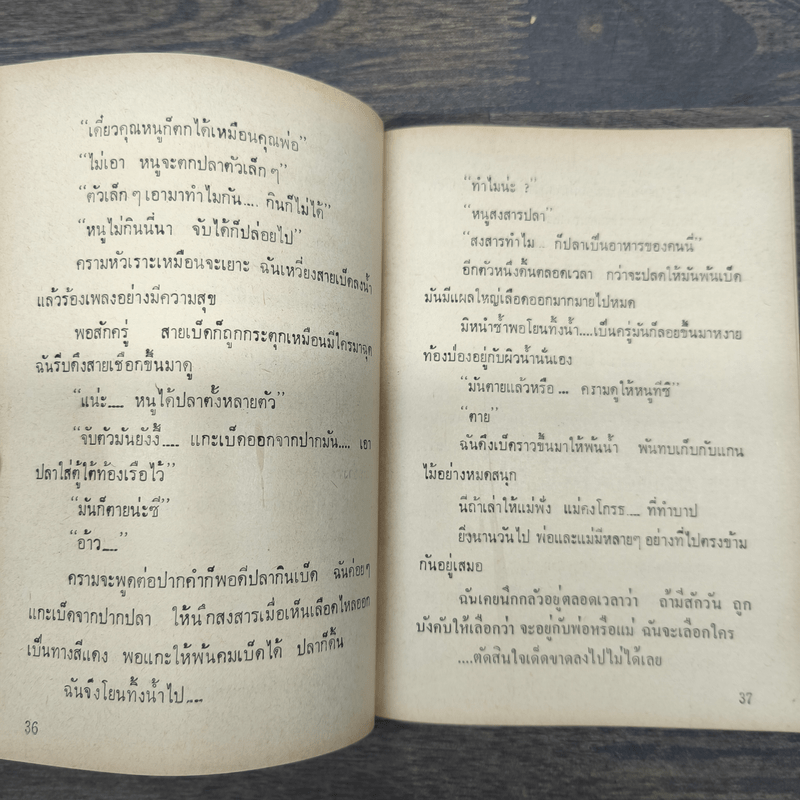 “เดี๋ยวคุณหนูก็ตกได้เหมือนคุณพ่อ”
“ไม่เอา หนูจะตกปลาตัวเล็กๆ”
“ตัวเล็กๆ เอามาทำไมกัน.... กินก็ไม่ได้”
“หนูไม่กินนี่นา จับได้ก็ปล่อยไป”
ครามหัวเราะเหมือนจะเยาะ ฉันเหวี่ยงสายเบ็ดลงน้ำ
แล้วร้องเพลงอย่างมีความสุข
พอสักครู่ สายเบ็ดก็ถูกกระตุกเหมือนมีใครมาฉุด
ฉันรีบดึงสายเชือกขึ้นมาดู
“แน่ะ.... หนูได้ปลาตั้งหลายตัว”
“จับตัวมันยังงี้.... แกะเบ็ดออกจากปากมัน.... เอา
ปลาใส่ตู้ใต้ท้องเรือไว้”
“มันก็ตายน่ะซี”
“อ้าว....”
ครามจะพูดต่อปากคำก็พอดีปลากินเบ็ด ฉันค่อยๆ
แกะเบ็ดจากปากปลา ให้นึกสงสารเมื่อเห็นเลือดไหลออก
เป็นทางสีแดง พอแกะให้พ้นคมเบ็ดได้ ปลาก็ดิ้น
ฉันจึงโยนทิ้งน้ำไป....
36
“ทำไมน่ะ ?”
“หนูสงสารปลา”
“สงสารทำไม .. ก็ปลาเป็นอาหารของคนนี่”
อีกตัวหนึ่งดิ้นตลอดเวลา กว่าจะปลดให้มันพ้นเบ็ด
มันมีแผลใหญ่เลือดออกมากมายไปหมด
มิหนำซ้ำพอโยนทิ้งน้ำ....เป็นครู่มันก็ลอยขึ้นมาหงาย
ท้องป่องอยู่กับผิวน้ำนั่นเอง
“มันตายแล้วหรือ ... ครามดูให้หนูทีซิ”
“ตาย”
ฉันดึงเบ็ดราวขึ้นมาให้พ้นน้ำ พันทบเก็บกับแกน
ไม้อย่างหมดสนุก
นี่ถ้าเล่าให้แม่ฟัง แม่คงโกรธ.... ที่ทำบาป
ยิ่งนานวันไป พ่อและแม่มีหลายๆ อย่างที่ไปตรงข้าม
กันอยู่เสมอ
ฉันเคยนึกกลัวอยู่ตลอดเวลาว่า ถ้ามีสักวัน ถูก
บังคับให้เลือกว่า จะอยู่กับพ่อหรือแม่ ฉันจะเลือกใคร
....ตัดสินใจเด็ดขาดลงไปไม่ได้เลย
37